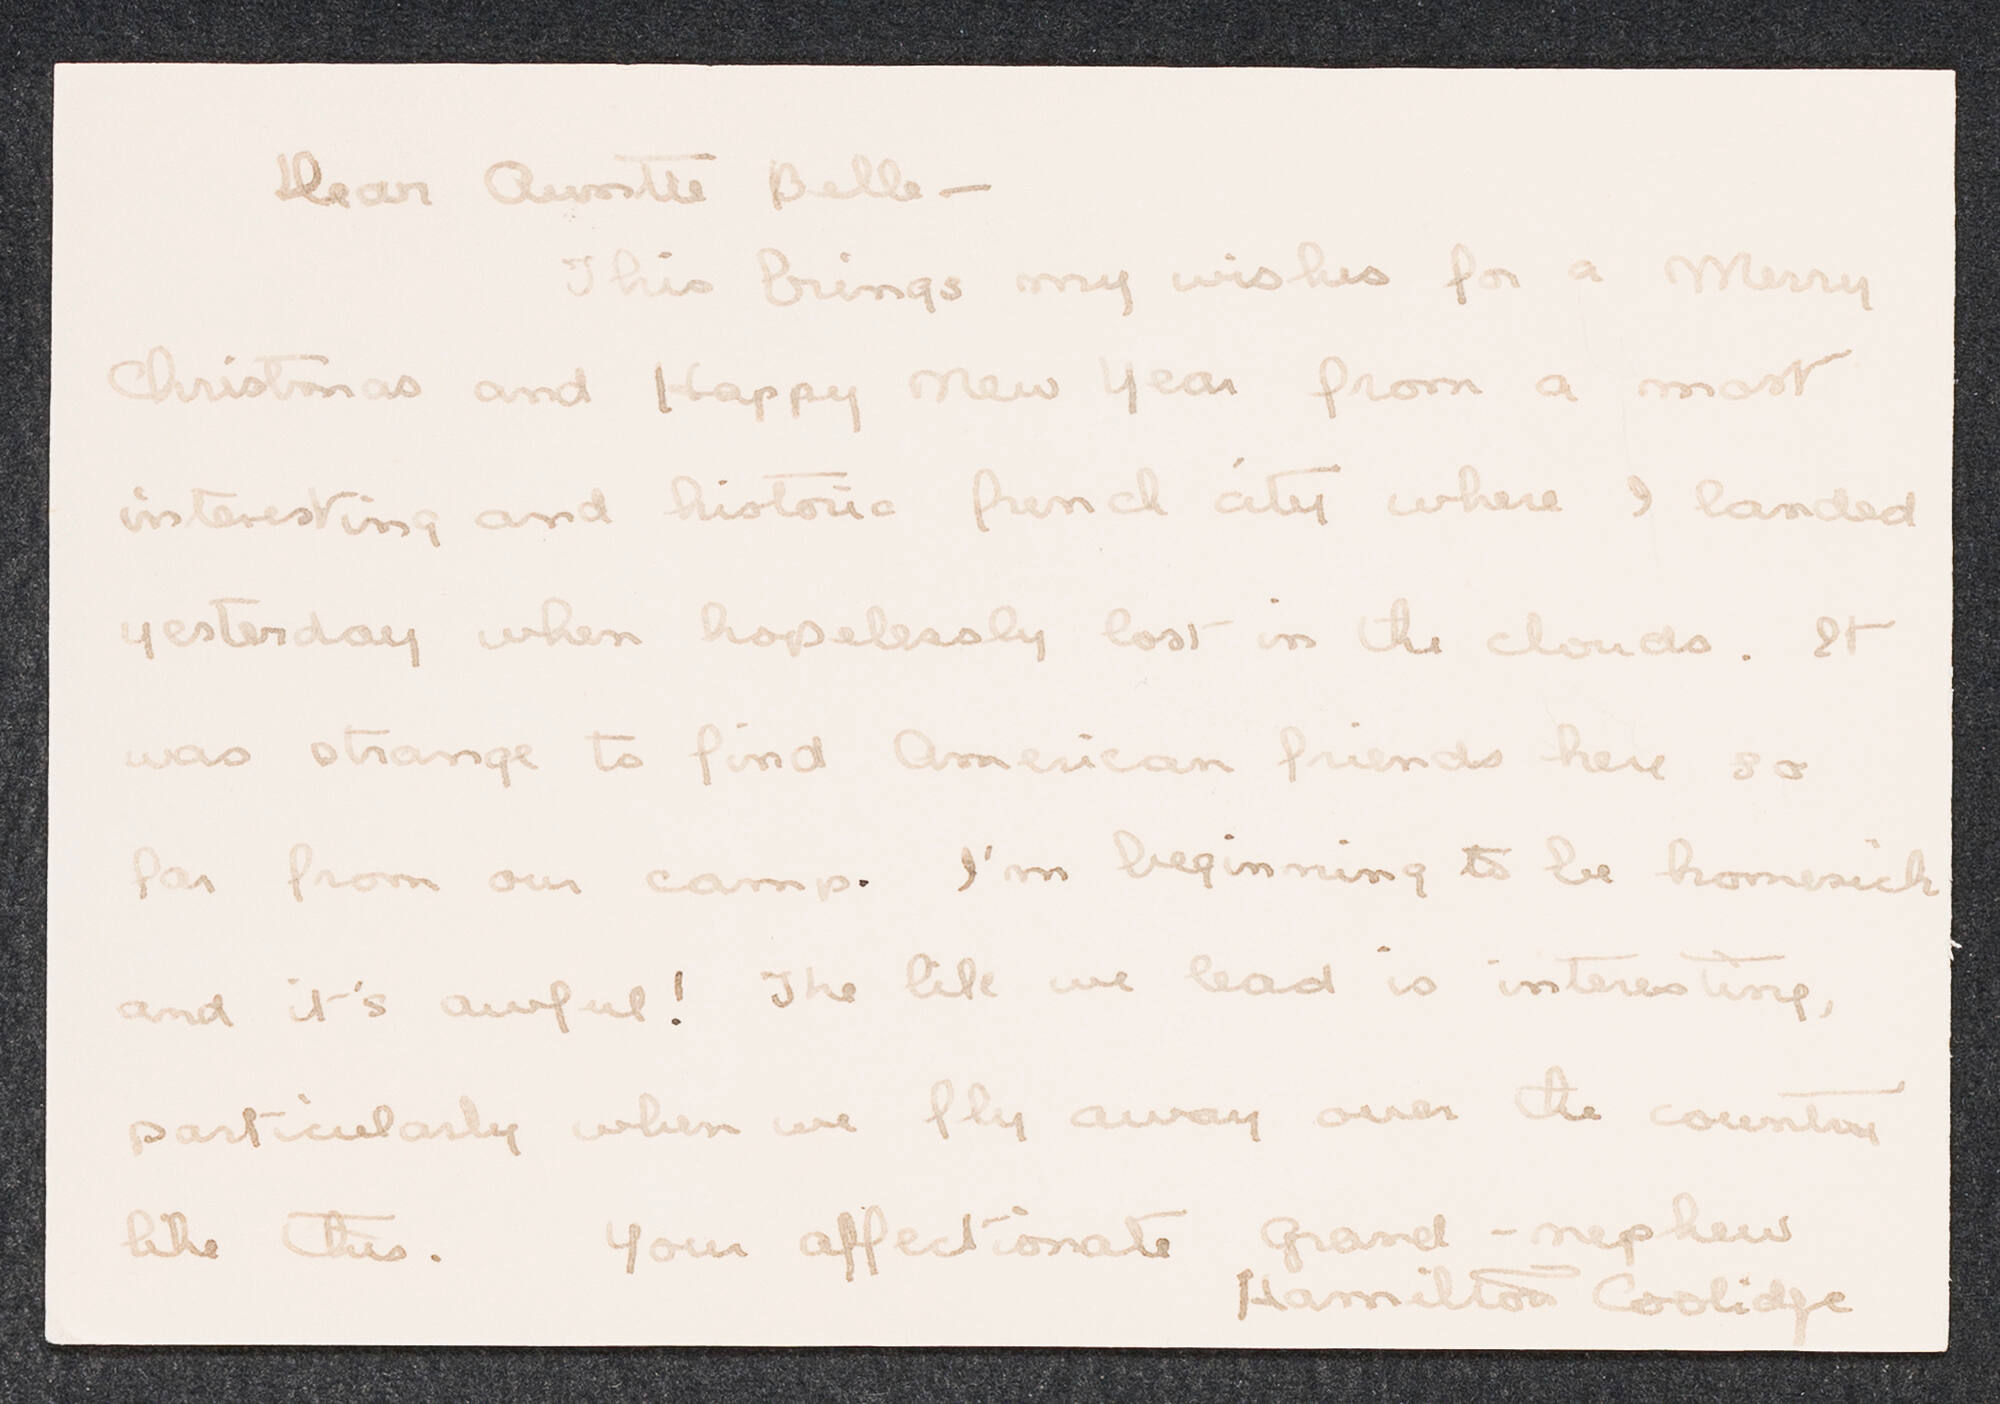 Dear Auntie Belle—
This brings my wishes for a Merry
Christmas and Happy New Year from a most
interesting and historic french city where I landed
yesterday when hopelessly lost in the clouds. It
was strange to find American friends here so
far from our camp. I'm beginning to be homesick
and it's awful! The life we lead is interesting,
particularly when we fly away over the country
like this. Your affectionate grand-nephew
Hamilton Coolidge